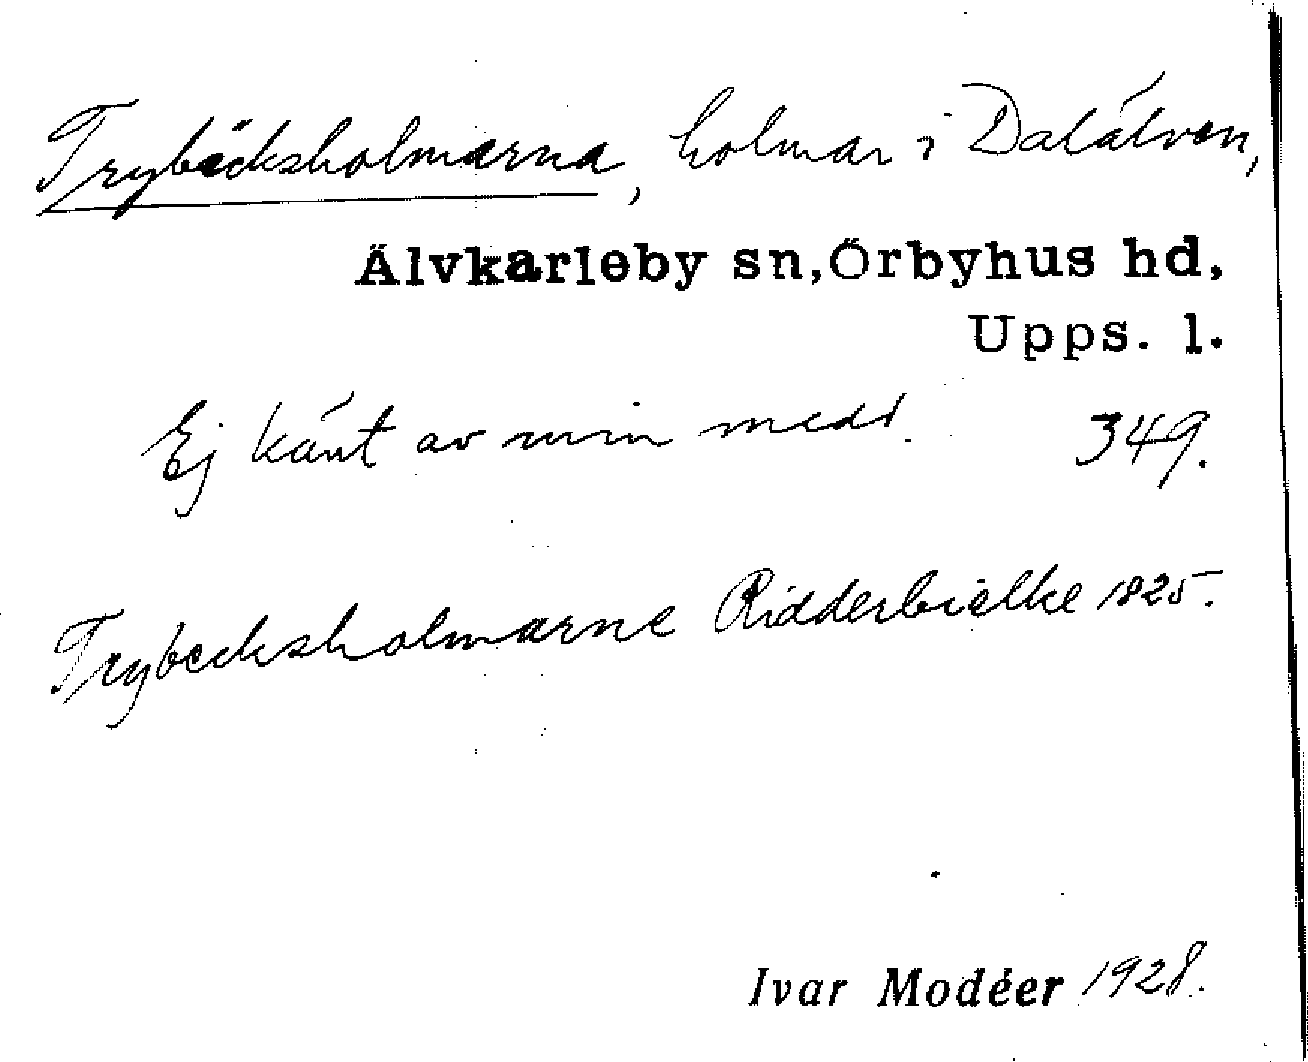 Trybäcksholmarna, holmar i Dalälven,
Älvkarleby sn, Örbyhus hd,
Upps. l.
Ej känt av min medd. 349.
Trybecksholmarne Ridderbielke 1825.
Ivar Modéer 1928.